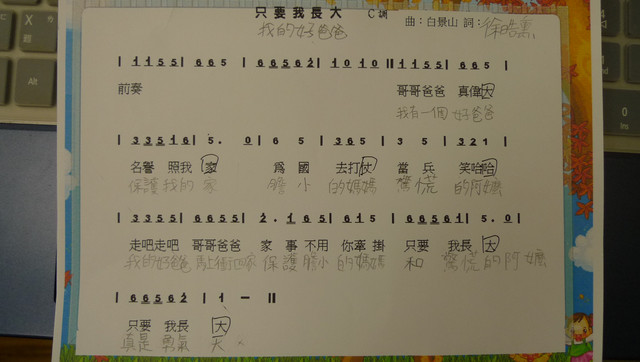 只要我長大 C調 曲：白景山 詞：徐皓熏
我的好爸爸
| 1155 | 665 | 66562 | 1010 || 1155 | 665 |
前奏 哥哥爸爸 真偉大
我有一個 好爸爸
| 33516 | 5. 0 | 6 5 | 365 | 3 5 | 321 |
名譽 照我家 為 國 去打仗 當 兵 笑哈哈
保護我的 家 膽 小 的媽媽 驚 慌 的阿嬤
| 3355 | 6655 | 2. 1 65 | 615 | 66561 | 5. 0 |
走吧走吧 哥哥爸爸 家 事 不用 你牽掛 只要 我長大
我的好爸爸 保護膽小 的媽媽 和 驚慌的阿嬤
| 66562 | 1 — ||
只要 我長 大
真是 勇氣 大